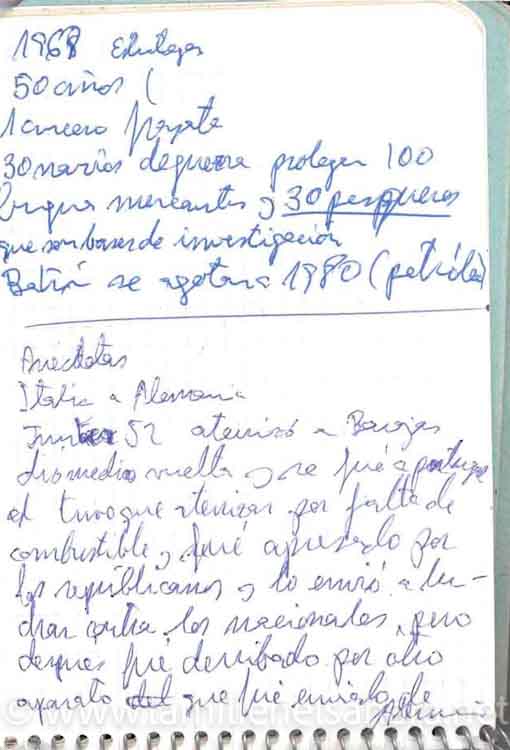 1968
50 años (
1 crucero fragata
30 navios de guerra protegen 100
buques mercantes y 30 pesqueros
que son bases de investigación
se agotara 1980 (petróleo)
Anécdotas
Italia a Alemania
52 aterrizó a Barajas
dio media vuelta y se fué a
el tuvo que aterrizar por falta de
combustible y fué apresado por
los republicanos y lo envió a lu-
char contra los nacionales, pero
despues fué derribado por otro
aparato del que fué enviado de
Alemania